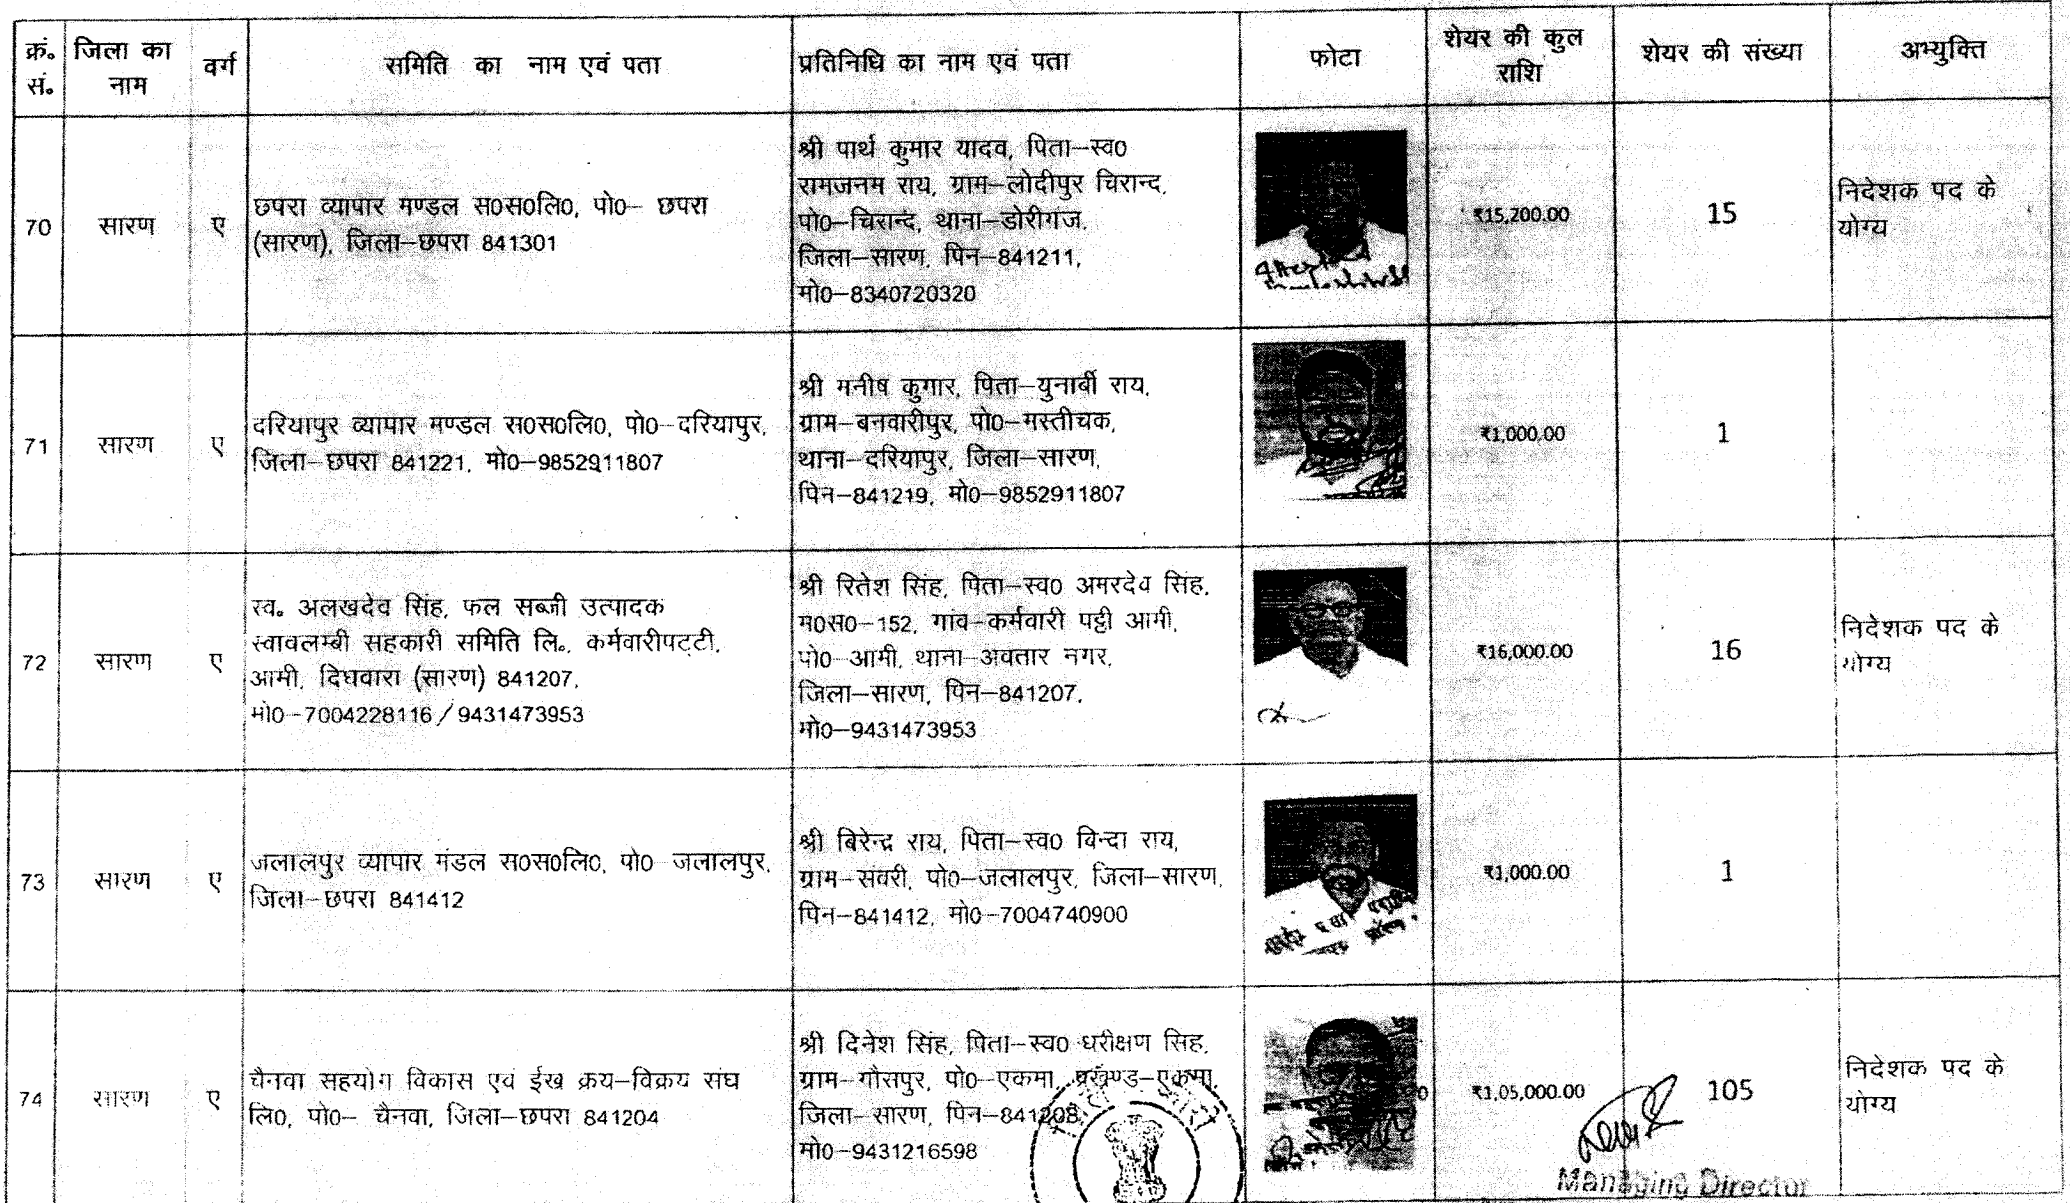 क्रं. सं. जिला का नाम वर्ग समिति का नाम एवं पता प्रतिनिधि का नाम एवं पता फोटा शेयर की कुल राशि शेयर की संख्या अभ्युक्ति
70 सारण ए
छपरा व्यापार मण्डल स0स0लि0, पो0– छपरा
(सारण), जिला–छपरा 841301
श्री पार्थ कुमार यादव, पिता–स्व0
रामजनम राय, ग्राम–लोदीपुर चिरान्द,
पो0–चिरान्द, थाना–डोरीगंज,
जिला–सारण, पिन–841211,
मो0–8340720320
₹15,200.00
15
निदेशक पद के
योग्य
71 सारण ए
दरियापुर व्यापार मण्डल स0स0लि0, पो0–दरियापुर,
जिला–छपरा 841221, मो0–9852911807
श्री मनीष कुमार, पिता–युनार्बी राय,
ग्राम–बनवारीपुर, पो0–मस्तीचक,
थाना–दरियापुर, जिला–सारण,
पिन–841219, मो0–9852911807
₹1,000.00
1
72 सारण ए
स्व. अलखदेव सिंह, फल सब्जी उत्पादक
स्वावलम्बी सहकारी समिति लि., कर्मवारीपट्टी,
आमी, दिघवारा (सारण) 841207,
मो0–7004228116/9431473953
श्री रितेश सिंह, पिता–स्व0 अमरदेव सिंह,
म0स0–152, गांव–कर्मवारी पट्टी आमी,
पो0–आमी, थाना–अवतार नगर,
जिला–सारण, पिन–841207,
मो0–9431473953
₹16,000.00
16
निदेशक पद के
योग्य
73 सारण ए
जलालपुर व्यापार मंडल स0स0लि0, पो0 जलालपुर,
जिला–छपरा 841412
श्री बिरेन्द्र राय, पिता–स्व0 विन्दा राय,
ग्राम–संवरी, पो0–जलालपुर, जिला–सारण,
पिन–841412, मो0–7004740900
₹1,000.00
1
74 सारण ए
चैनवा सहयोग विकास एवं ईख क्रय–विक्रय संघ
लि0, पो0– चैनवा, जिला–छपरा 841204
श्री दिनेश सिंह, पिता–स्व0 धरीक्षण सिंह,
ग्राम–गौसपुर, पो0–एकमा, प्रखण्ड–एकमा,
जिला–सारण, पिन–841208,
मो0–9431216598
₹1,05,000.00
105
निदेशक पद के
योग्य
Managing Director